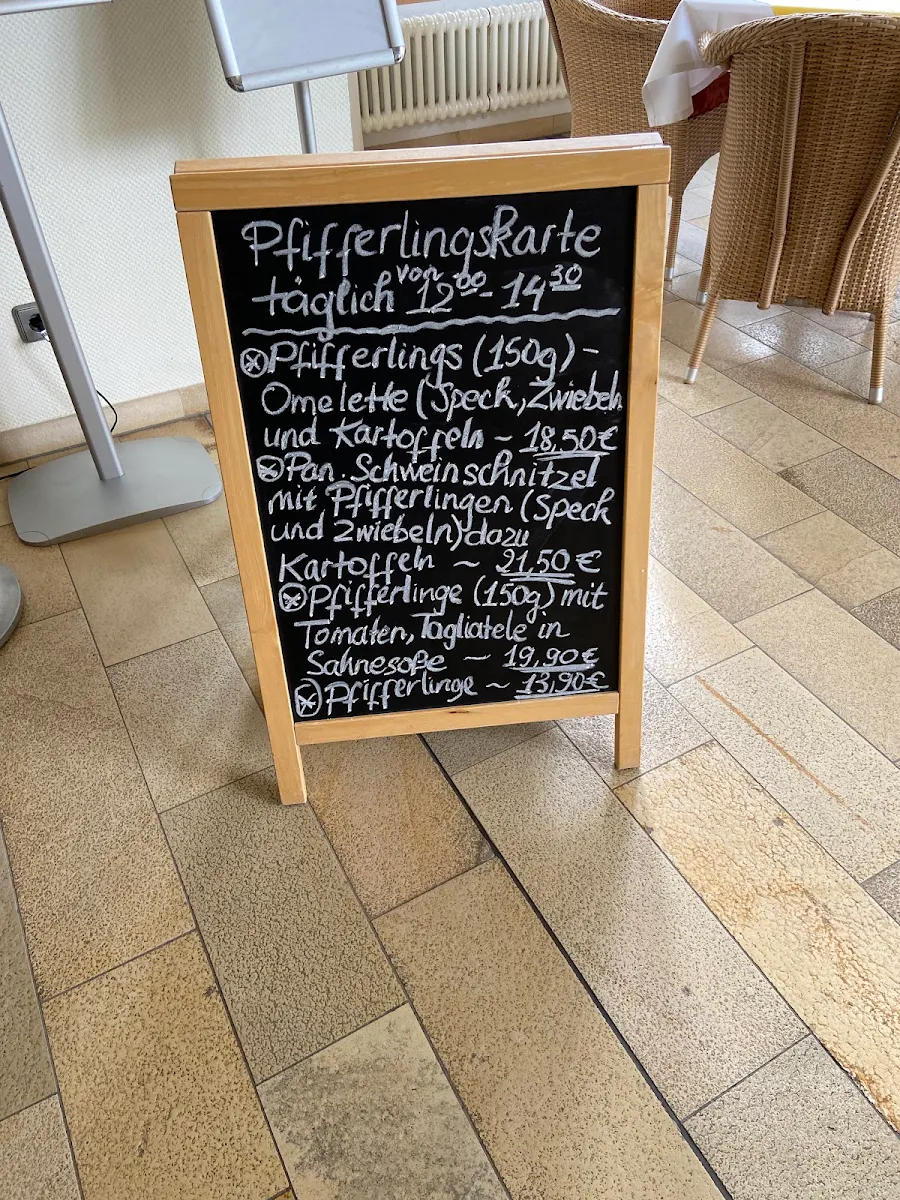 Pfifferlingskarte
täglich von 12⁰⁰- 14³⁰
ⓧPfifferlings (150g) -
Omelette (Speck, Zwiebeln
und Kartoffeln ~ 18,50€
ⓧPan. Schweinschnitzel
mit Pfifferlingen (Speck
und Zwiebeln) dazu
Kartoffeln ~ 21,50 €
ⓧPfifferlinge (150g) mit
Tomaten, Tagliatele in
Sahnesoße ~ 19,90 €
ⓧPfifferlinge ~ 13,90€